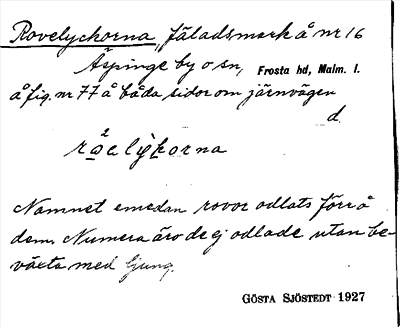 Rovelyckorna, Fäladsmark å nr 16
Äspinge by o sn, Frosta hd, Malm. l.
å fig. nr 77 å båda sidor om järnvägen
d.
2
Namnet emedan rovor odlats förr å
dem. Numera äro de ej odlade utan be-
växta med ljung.
GÖSTA SJÖSTEDT 1927